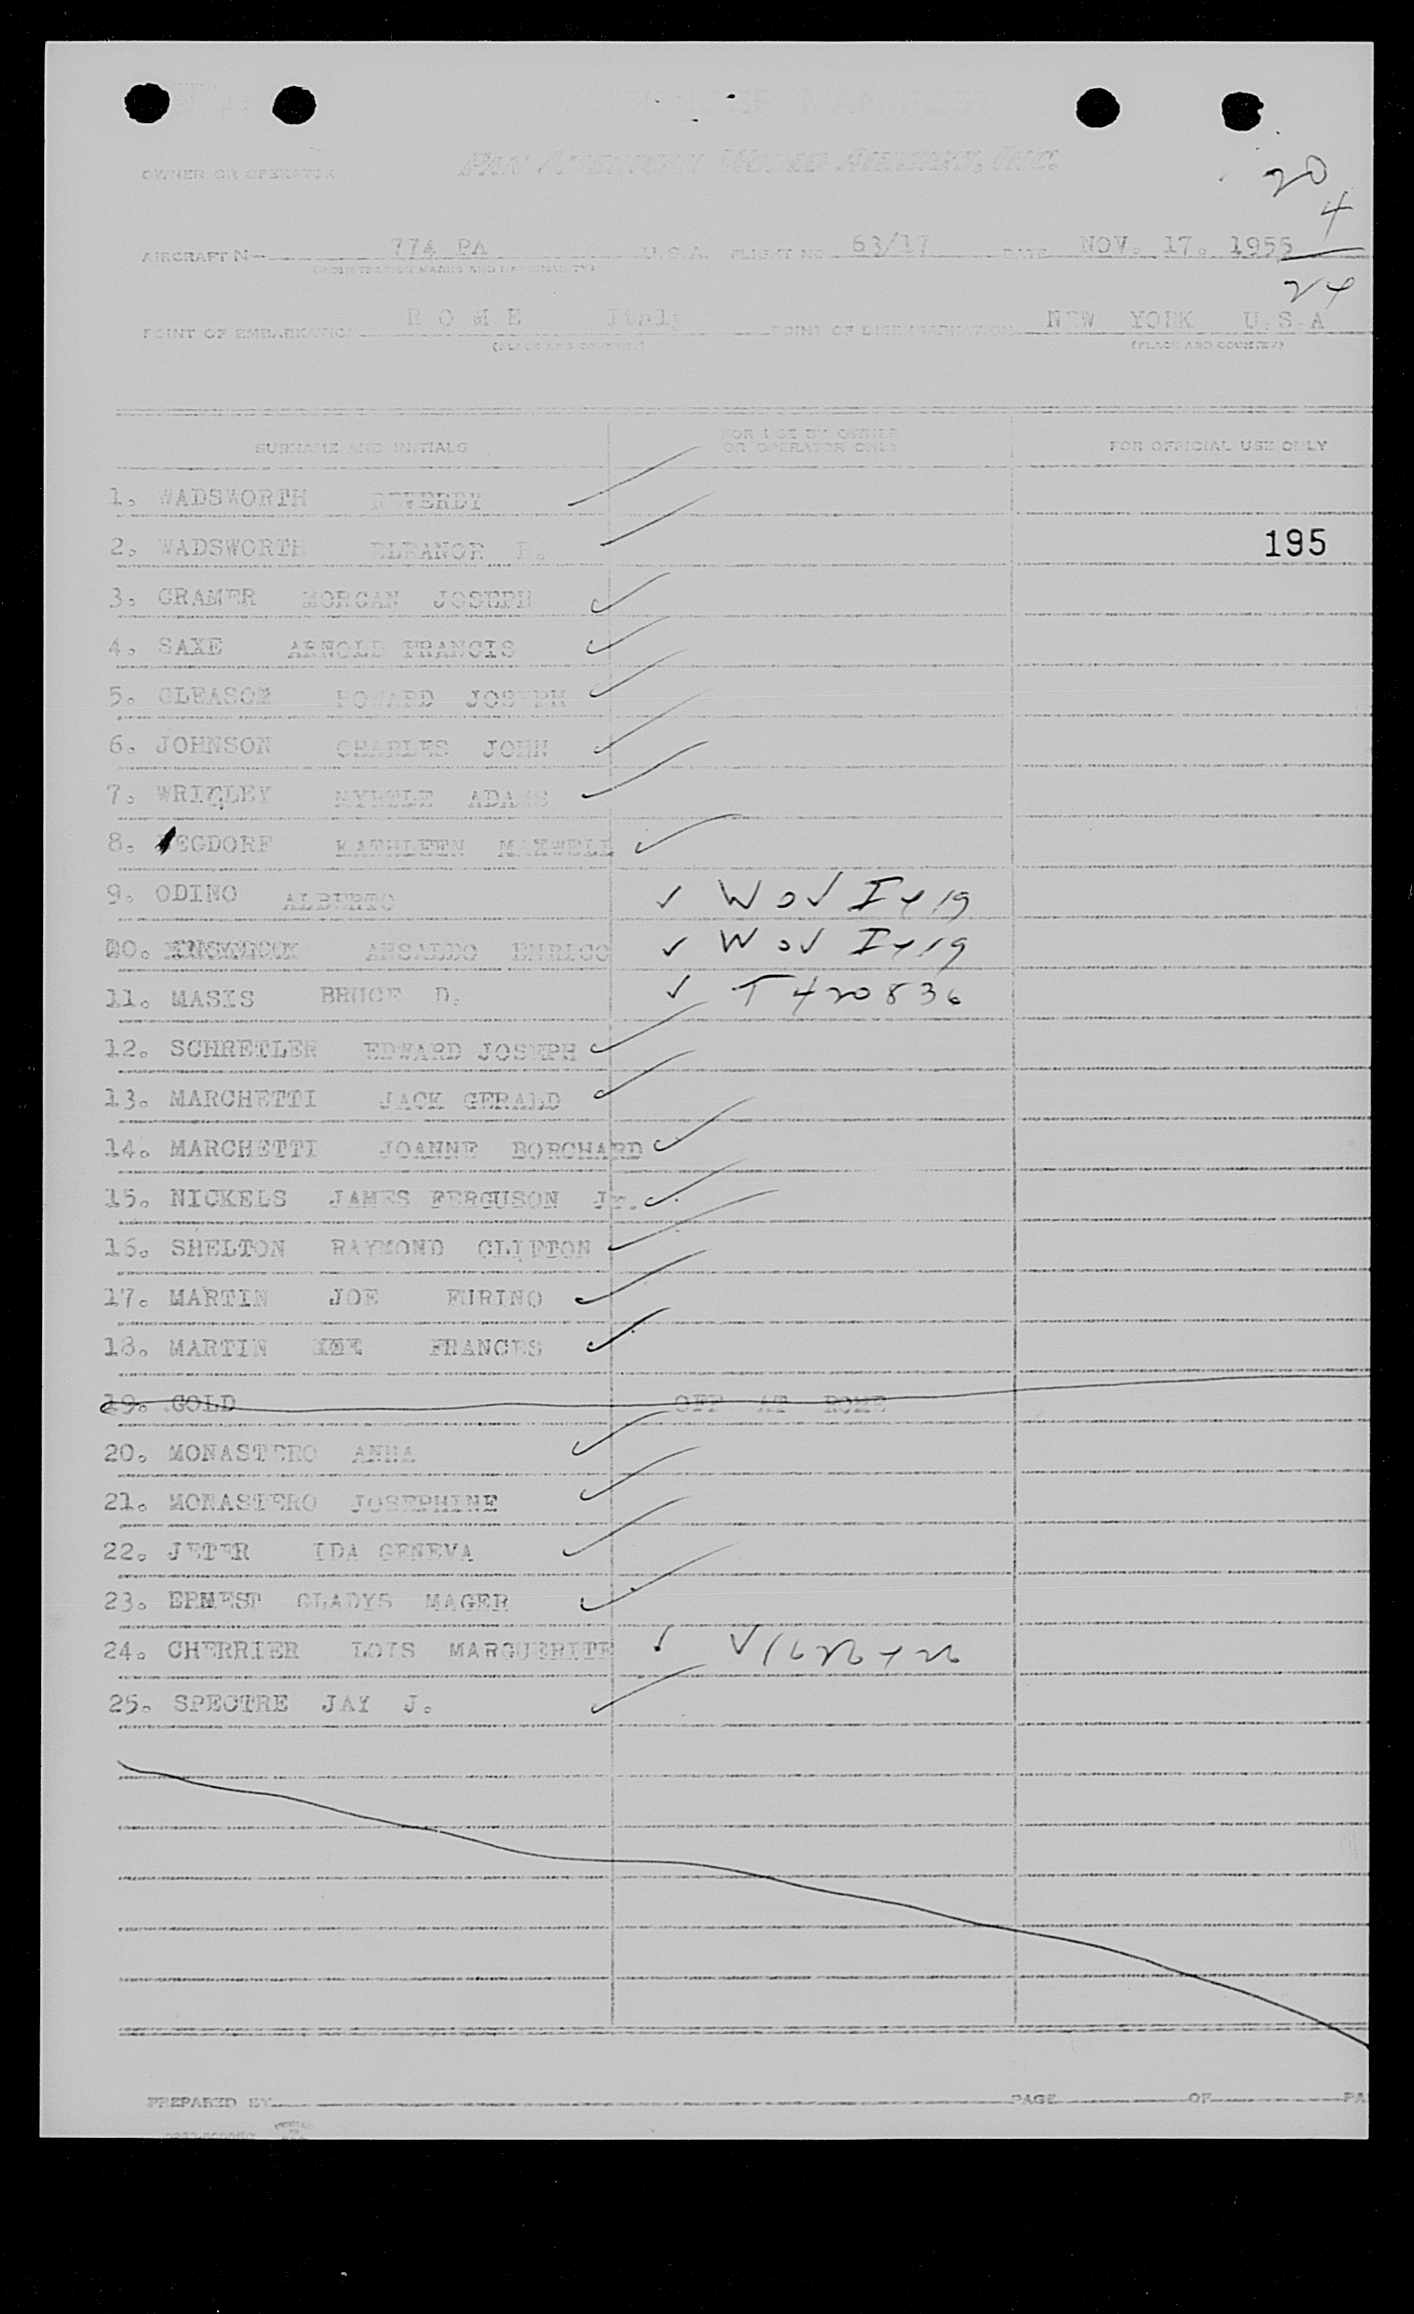 PAN AMERICAN WORLD AIRWAYS, INC.
OWNER OR OPERATOR
20
4
24
AIRCRAFT N 774 PA U.S.A. FLIGHT NO. 63/17 DATE NOV. 17. 1955
(REGISTRATION MARKS AND NATIONALITY)
POINT OF EMBARKATION ROME Italy POINT OF DISEMBARKATION NEW YORK U.S.A
(PLACE AND COUNTRY) (PLACE AND COUNTRY)
SURNAME AND INITIALS FOR USE BY OWNER OR OPERATOR ONLY FOR OFFICIAL USE ONLY
1. WADSWORTH REVERDY
2. WADSWORTH ELEANOR
195
3. GRAMER MORGAN JOSEPH
4. SAXE ARNOLD FRANCIS
5. GLEASON HOWARD JOSEPH
6. JOHNSON CHARLES JOHN
7. WRIGLEY MYRTLE ADAMS
8. EGDORF KATHLEEN MAXWELL
9. ODINO ALBERTO ✓ W o V I 4 19
10. ANSALDO ENRICO ✓ W o V I 4 19
11. MASIS BRUCE D. ✓ T 420836
12. SCHRETLER EDWARD JOSEPH
13. MARCHETTI JACK GERALD
14. MARCHETTI JOANNE BORCHARD
15. NICKELS JAMES FERGUSON Jr.
16. SHELTON RAYMOND CLIFTON
17. MARTIN JOE FURINO
18. MARTIN FRANCES
19. GOLD OFF AT ROME
20. MONASTERO ANNA
21. MONASTERO JOSEPHINE
22. JETER IDA GENEVA
23. ERNEST GLADYS MAGER
24. CHERRIER LOIS MARGUERITE ✓ V1626426
25. SPECTRE JAY J.
PREPARED BY PAGE OF PA